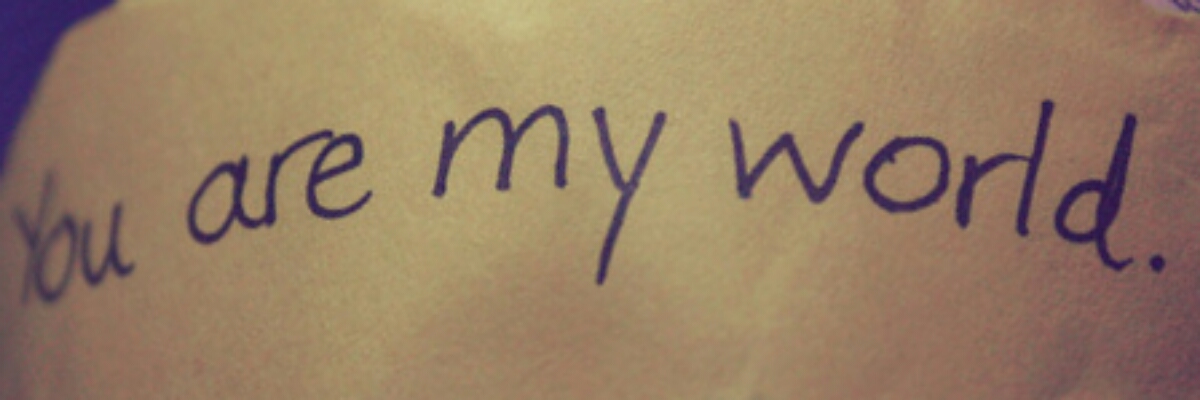 You are my world.